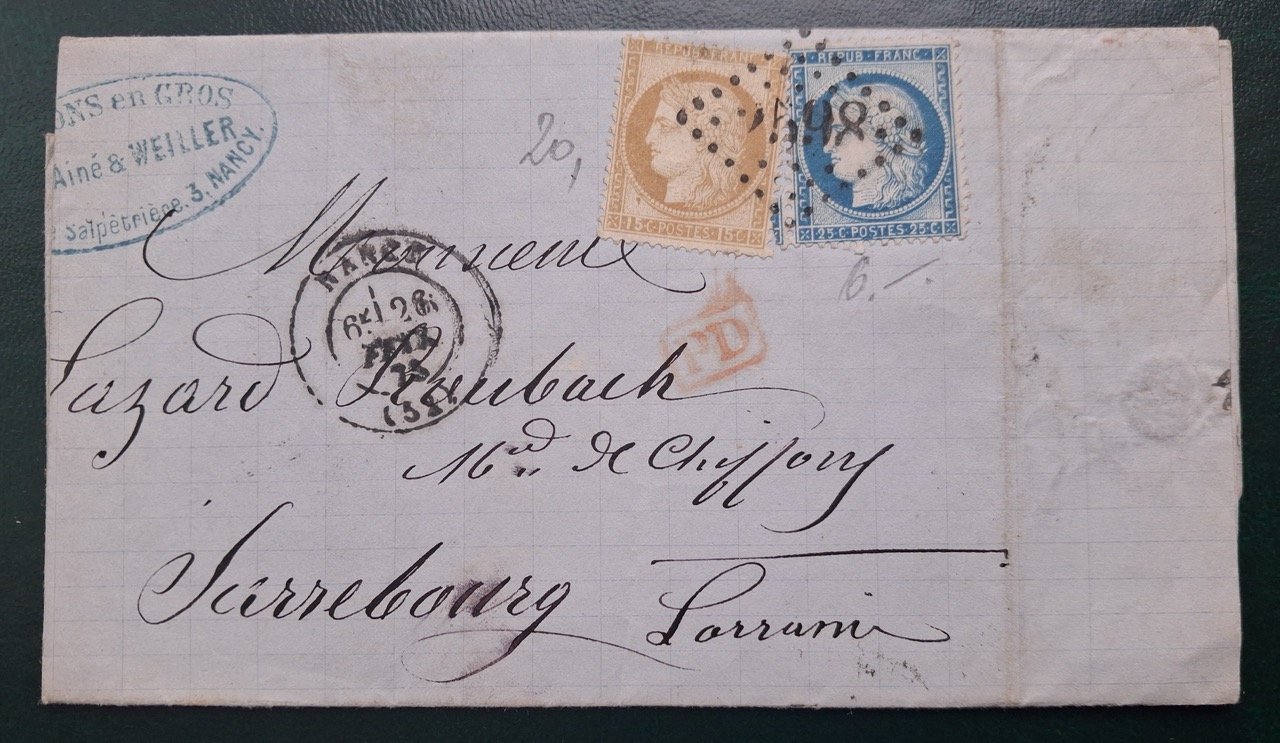 ONS en GROS
Ainé & WEILLER
Salpêtrière. 3. NANCY.
REPUB·FRANC
15C·POSTES·15C
REPUB·FRANC·
25C·POSTES·25C
20,
6.-
Monsieur
NANCY
6E 26
FEVR
73
(52)
PD
Lazard
Md de Chiffons
Sarrebourg
Lorraine